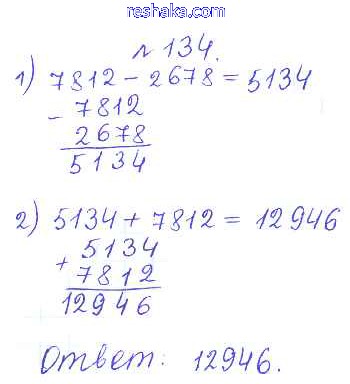 reshaka.com
№ 134.
1) 7812 - 2678 = 5134
- 7812
2678
5134
2) 5134 + 7812 = 12946
+ 5134
7812
12946
Ответ: 12946.